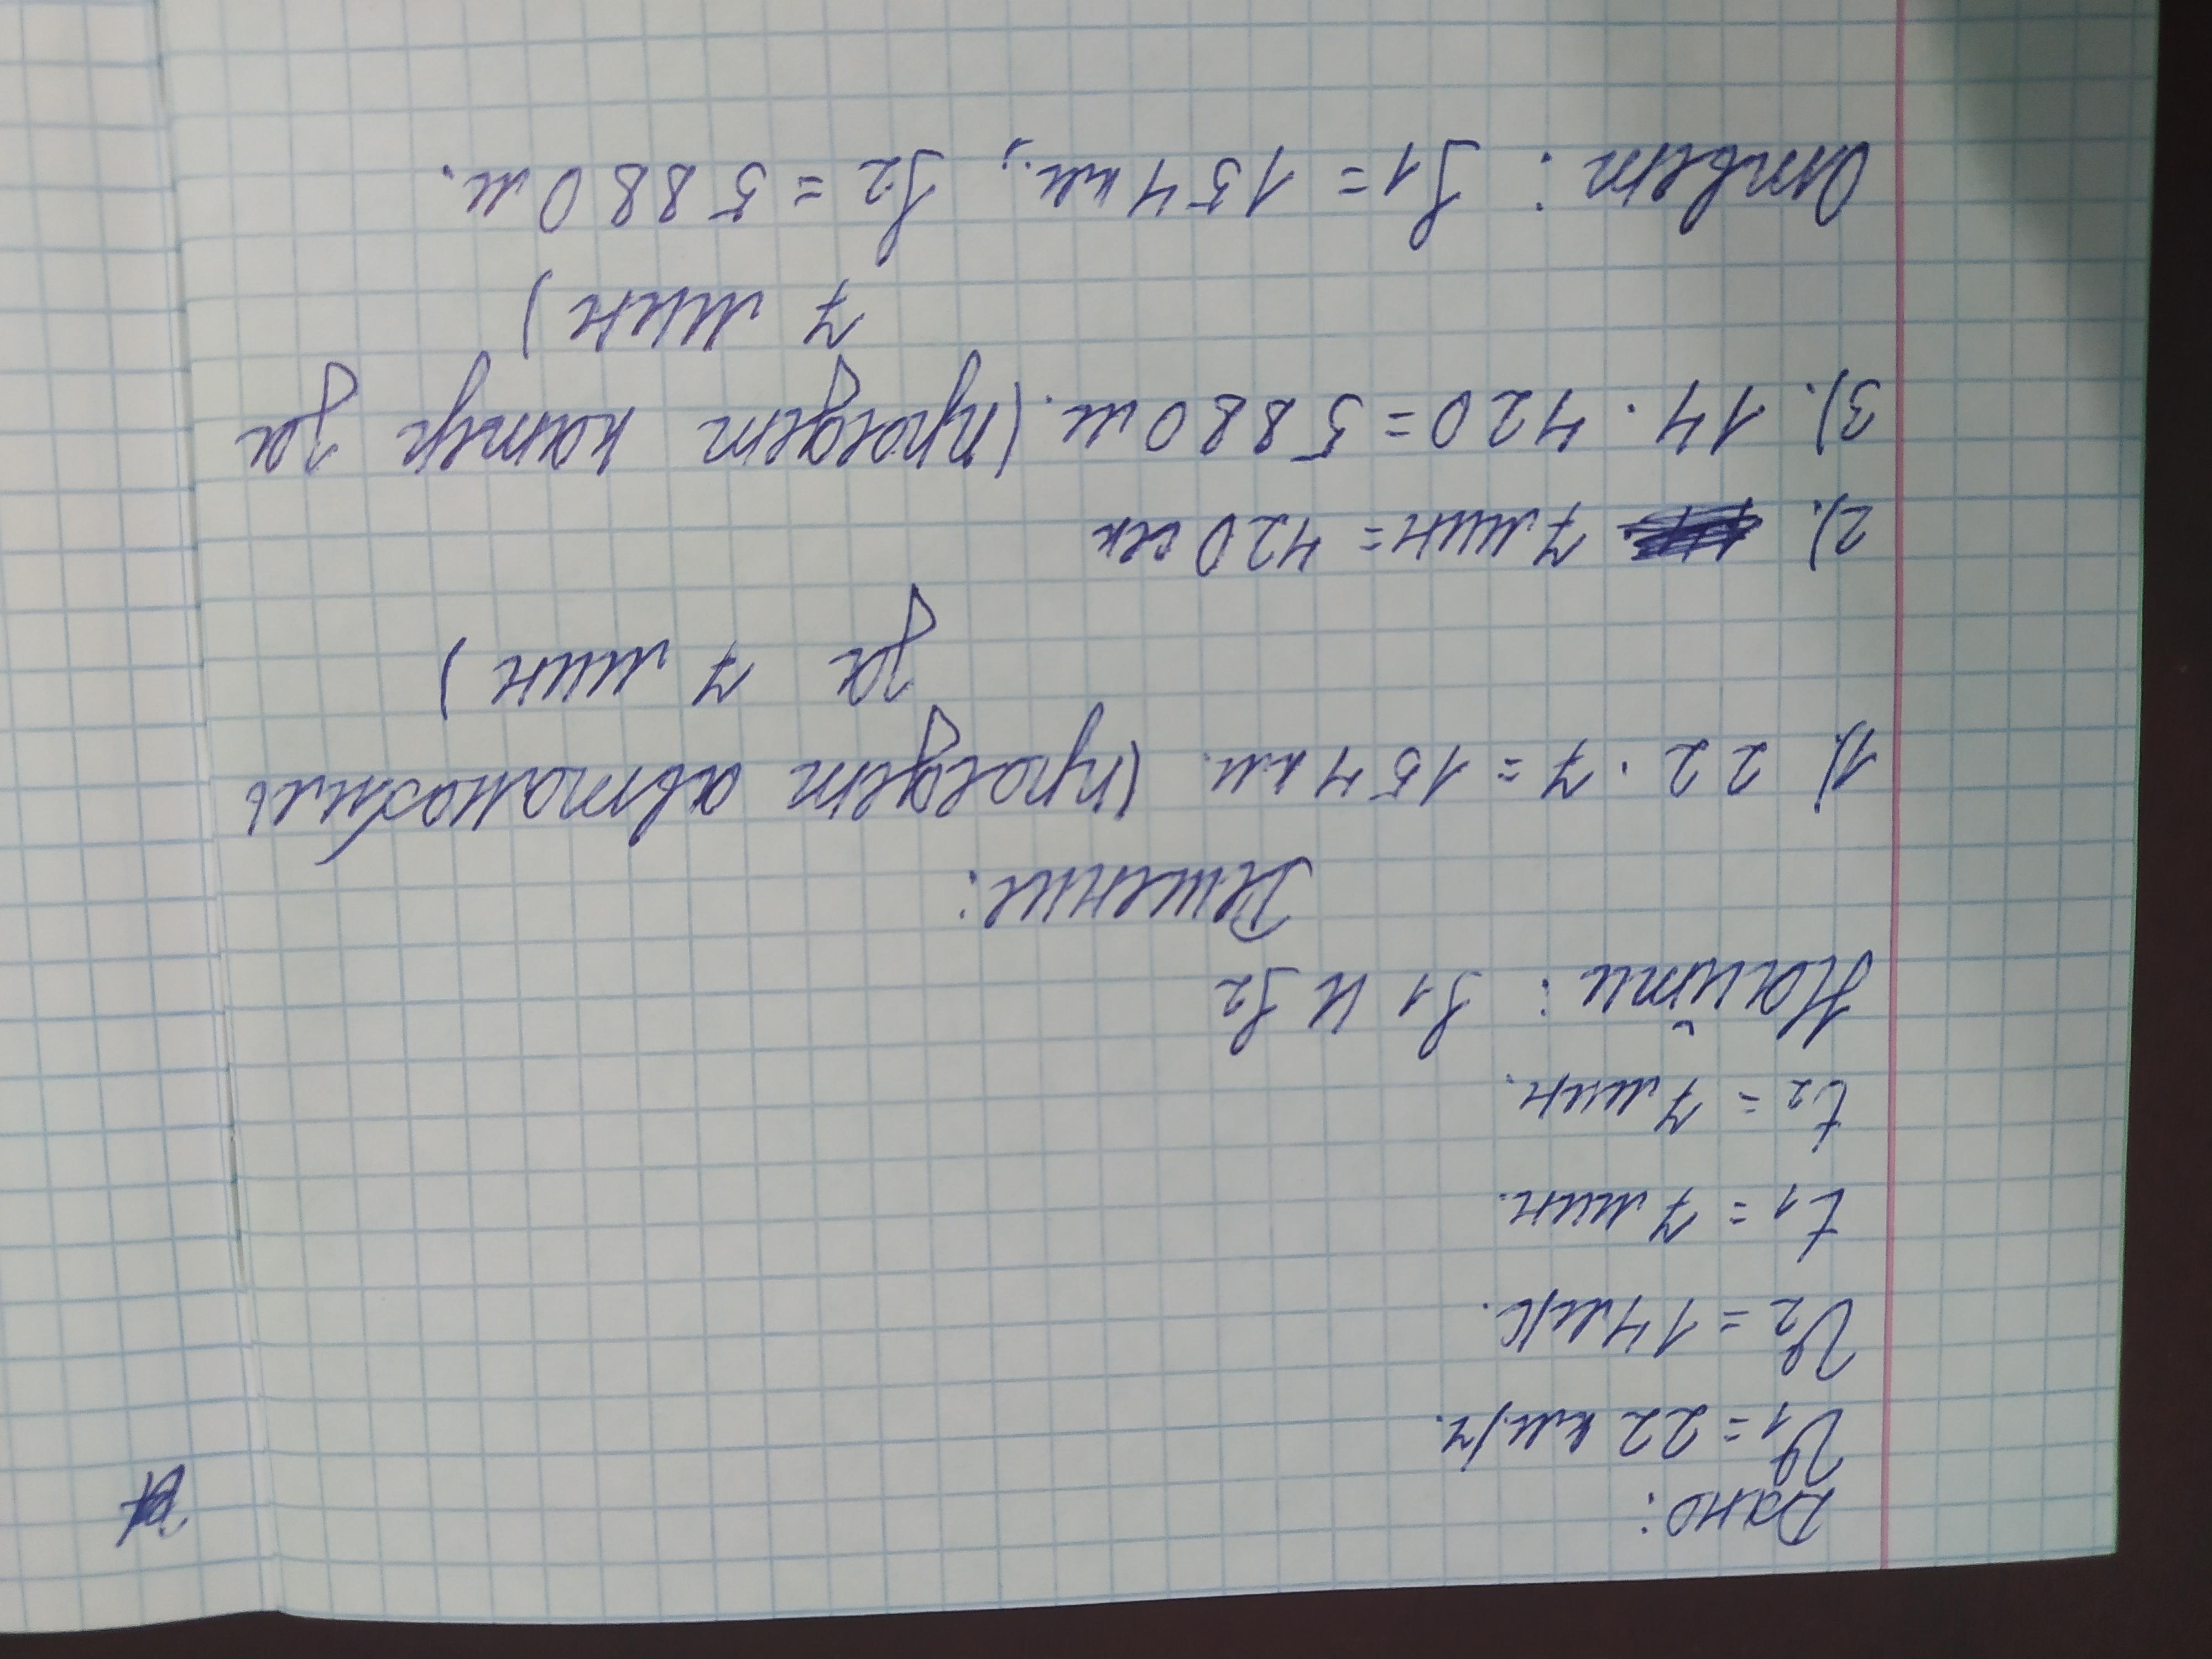 Дано:
V1 = 22 км/ч.
V2 = 14 м/с.
t1 = 7 мин.
t2 = 7 мин.
Найти: S1 и S2
Решение:
1). 22 · 7 = 154 км. (проедет автомобиль
за 7 мин)
2). 7 мин = 420 сек
3). 14 · 420 = 5880 м. (проедет катер за
7 мин)
Ответ: S1 = 154 км., S2 = 5880 м.